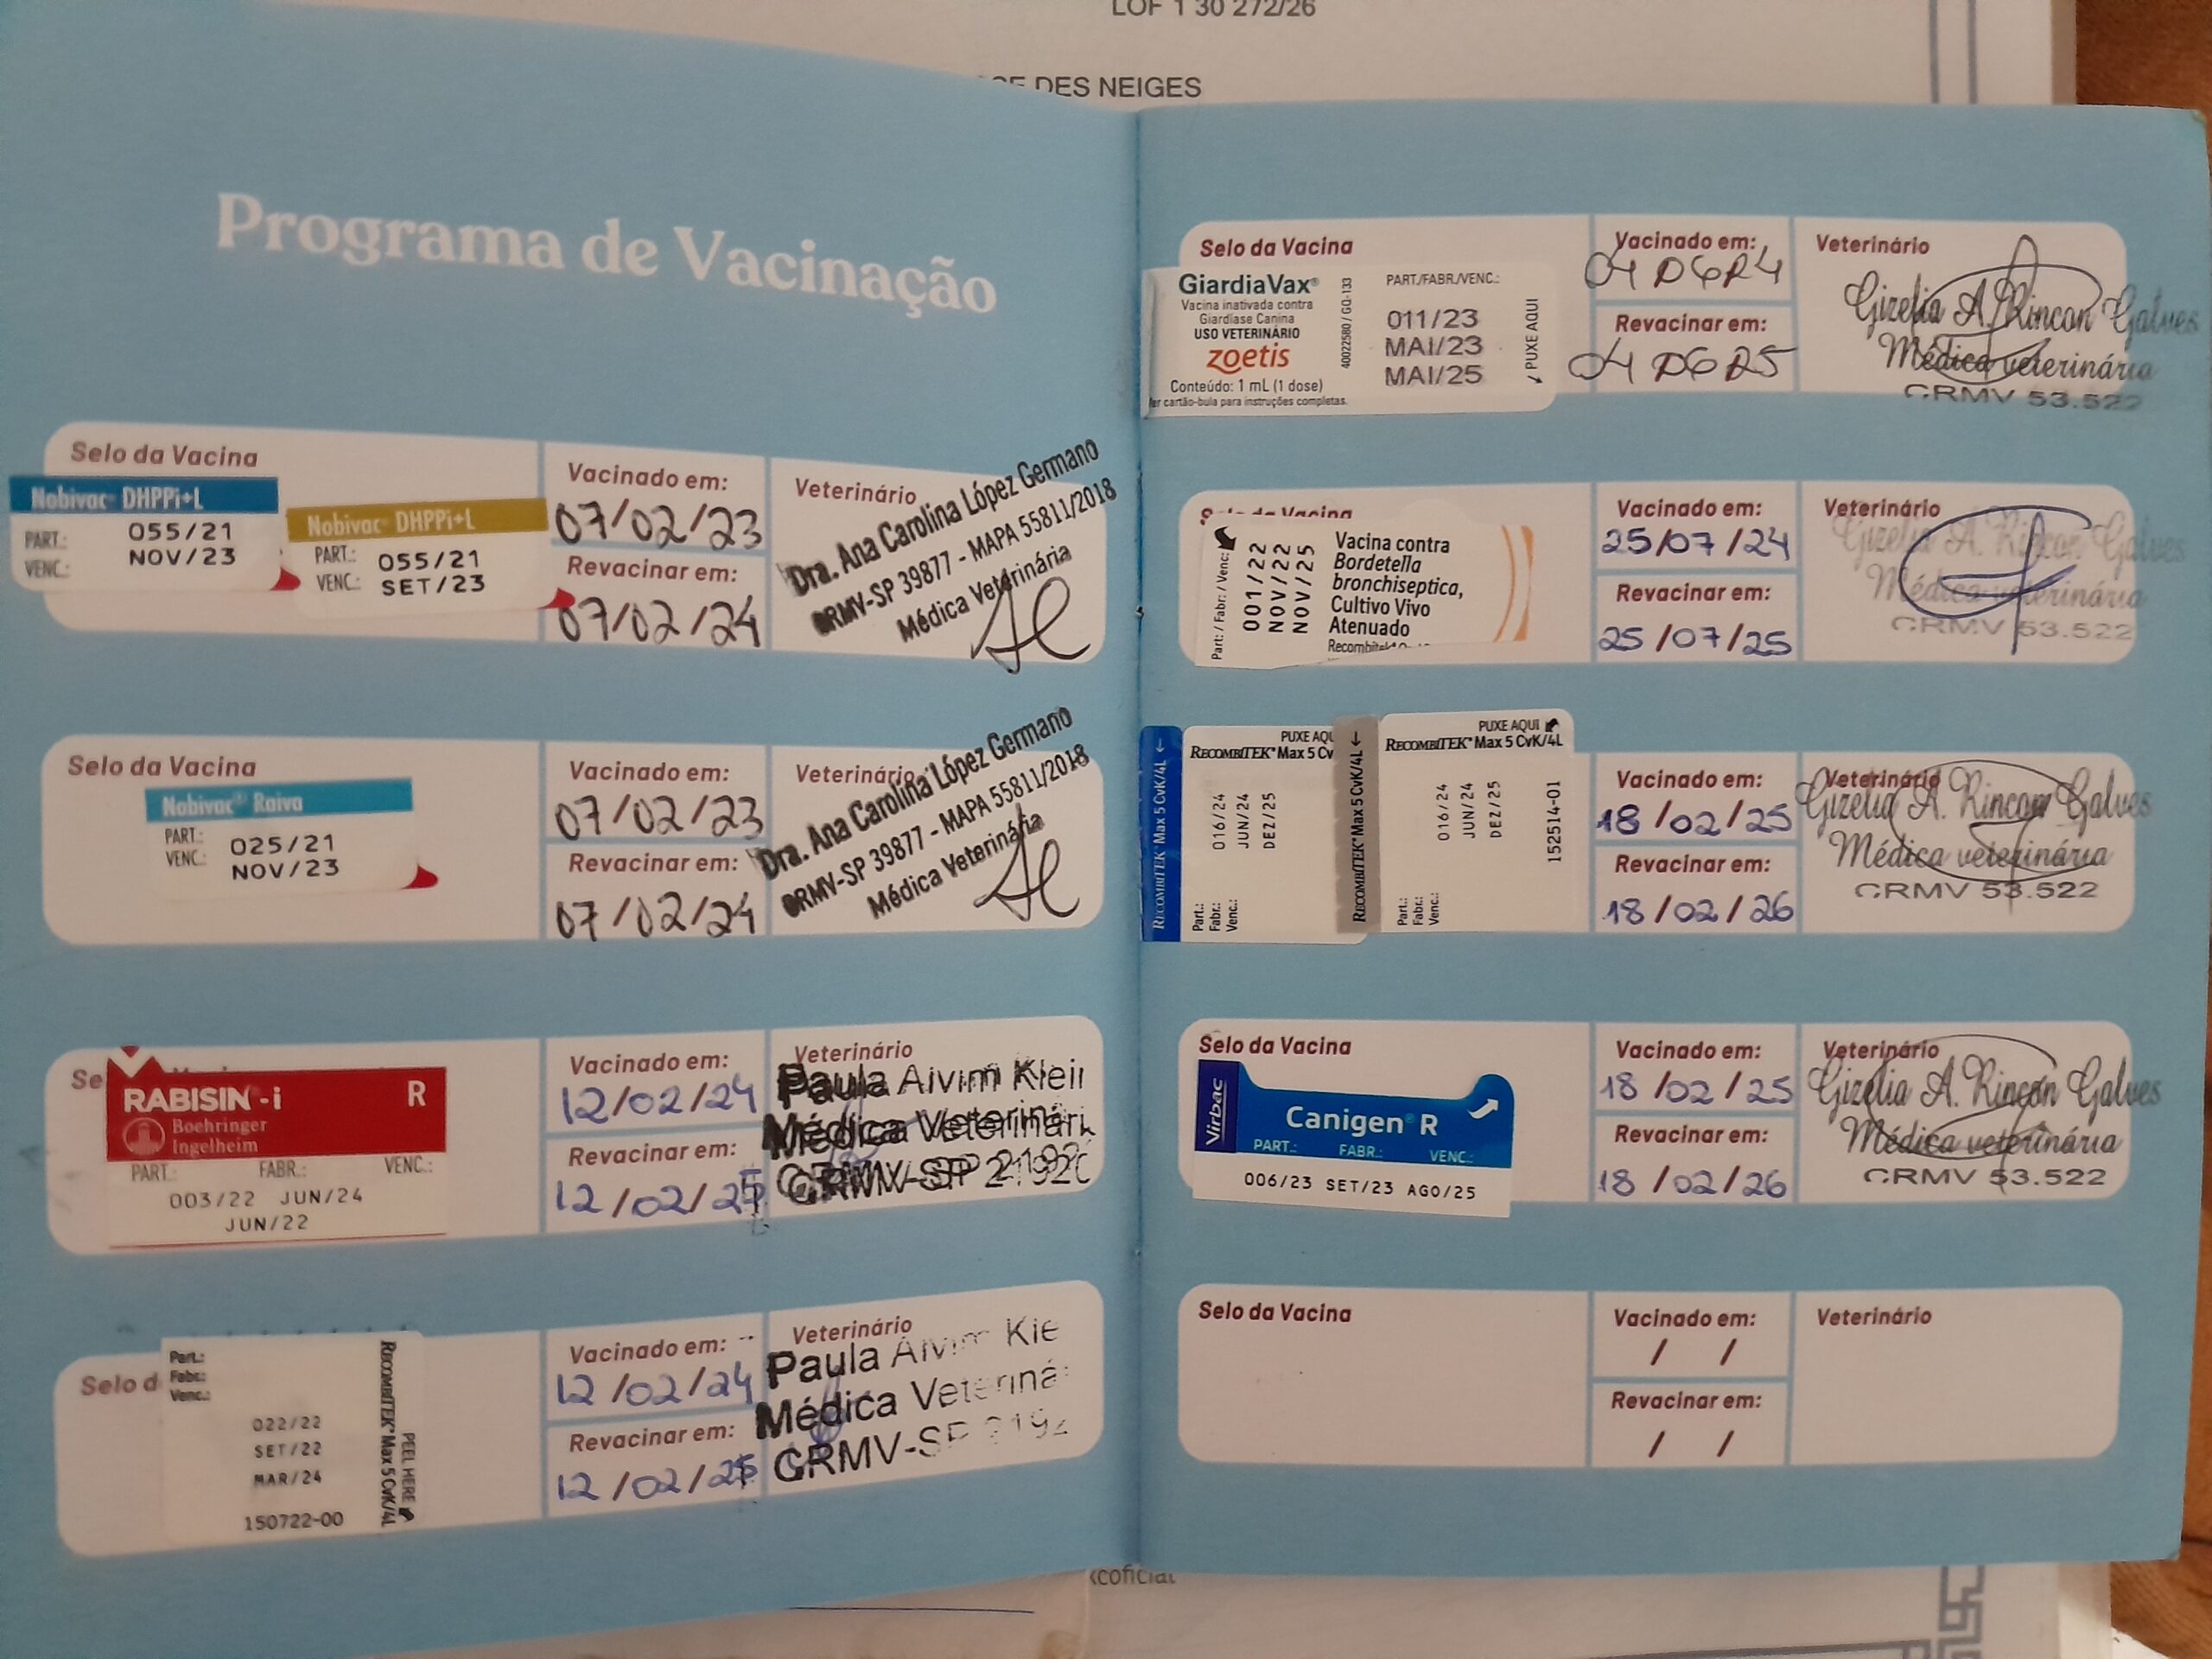 LOF 1 30 272/26
DES NEIGES
Programa de Vacinação
Selo da Vacina
Nobivac® DHPPi+L
PART.: 055/21
VENC.: NOV/23
Nobivac® DHPPi+L
PART.: 055/21
VENC.: SET/23
Vacinado em:
07/02/23
Revacinar em:
07/02/24
Veterinário
Dra. Ana Carolina López Germano
CRMV-SP 39877 - MAPA 55811/2018
Médica Veterinária
Selo da Vacina
Nobivac® Raiva
PART.: 025/21
VENC.: NOV/23
Vacinado em:
07/02/23
Revacinar em:
07/02/24
Veterinário
Dra. Ana Carolina López Germano
CRMV-SP 39877 - MAPA 55811/2018
Médica Veterinária
Se
RABISIN-i R
Boehringer
Ingelheim
PART.: FABR.: VENC.:
003/22 JUN/24
JUN/22
Vacinado em:
12/02/24
Revacinar em:
12/02/25
Veterinário
Paula Alvim Klei
Médica Veterinári
CRMV-SP
Selo d
Part.:
Fabr.:
Venc.:
022/22
SET/22
MAR/24
150722-00
RECOMBITEK® Max 5 CvK/4L
PEEL HERE
Vacinado em:
12/02/24
Revacinar em:
12/02/25
Veterinário
Paula Alvim Kle
Médica Veteriná
CRMV-SP 2192
Selo da Vacina
GiardiaVax®
Vacina inativada contra
Giardíase Canina
USO VETERINÁRIO
zoetis
Conteúdo: 1 mL (1 dose)
er cartão-bula para instruções completas.
40022580 / GQ-133
PART./FABR./VENC.:
011/23
MAI/23
MAI/25
PUXE AQUI
Vacinado em:
04 06 24
Revacinar em:
04 06 25
Veterinário
Gizelia A. Rincon Galves
Médica veterinária
CRMV 53.522
Vacina
Part: / Fabr: / Venc:
001/22
NOV/22
NOV/25
Vacina contra
Bordetella
bronchiseptica,
Cultivo Vivo
Atenuado
Vacinado em:
25/07/24
Revacinar em:
25/07/25
Veterinário
Gizelia A. Rincon Galves
Médica veterinária
CRMV 53.522
RECOMBITEK® Max 5 CvK/4L
PUXE AQU
RECOMBITEK® Max 5 Cv
016/24
JUN/24
DEZ/25
Part.:
Fabr.:
Venc.:
RECOMBITEK® Max 5 CvK/4L
PUXE AQUI
RECOMBITEK® Max 5 CvK/4L
016/24
JUN/24
DEZ/25
152514-01
Part.:
Fabr.:
Venc.:
Vacinado em:
18/02/25
Revacinar em:
18/02/26
Veterinário
Gizelia A. Rincon Galves
Médica veterinária
CRMV 53.522
Selo da Vacina
Virbac
Canigen® R
PART.: FABR.: VENC.:
006/23 SET/23 AGO/25
Vacinado em:
18/02/25
Revacinar em:
18/02/26
Veterinário
Gizelia A. Rincon Galves
Médica veterinária
CRMV 53.522
Selo da Vacina
Vacinado em:
/ /
Revacinar em:
/ /
Veterinário
kcoficial